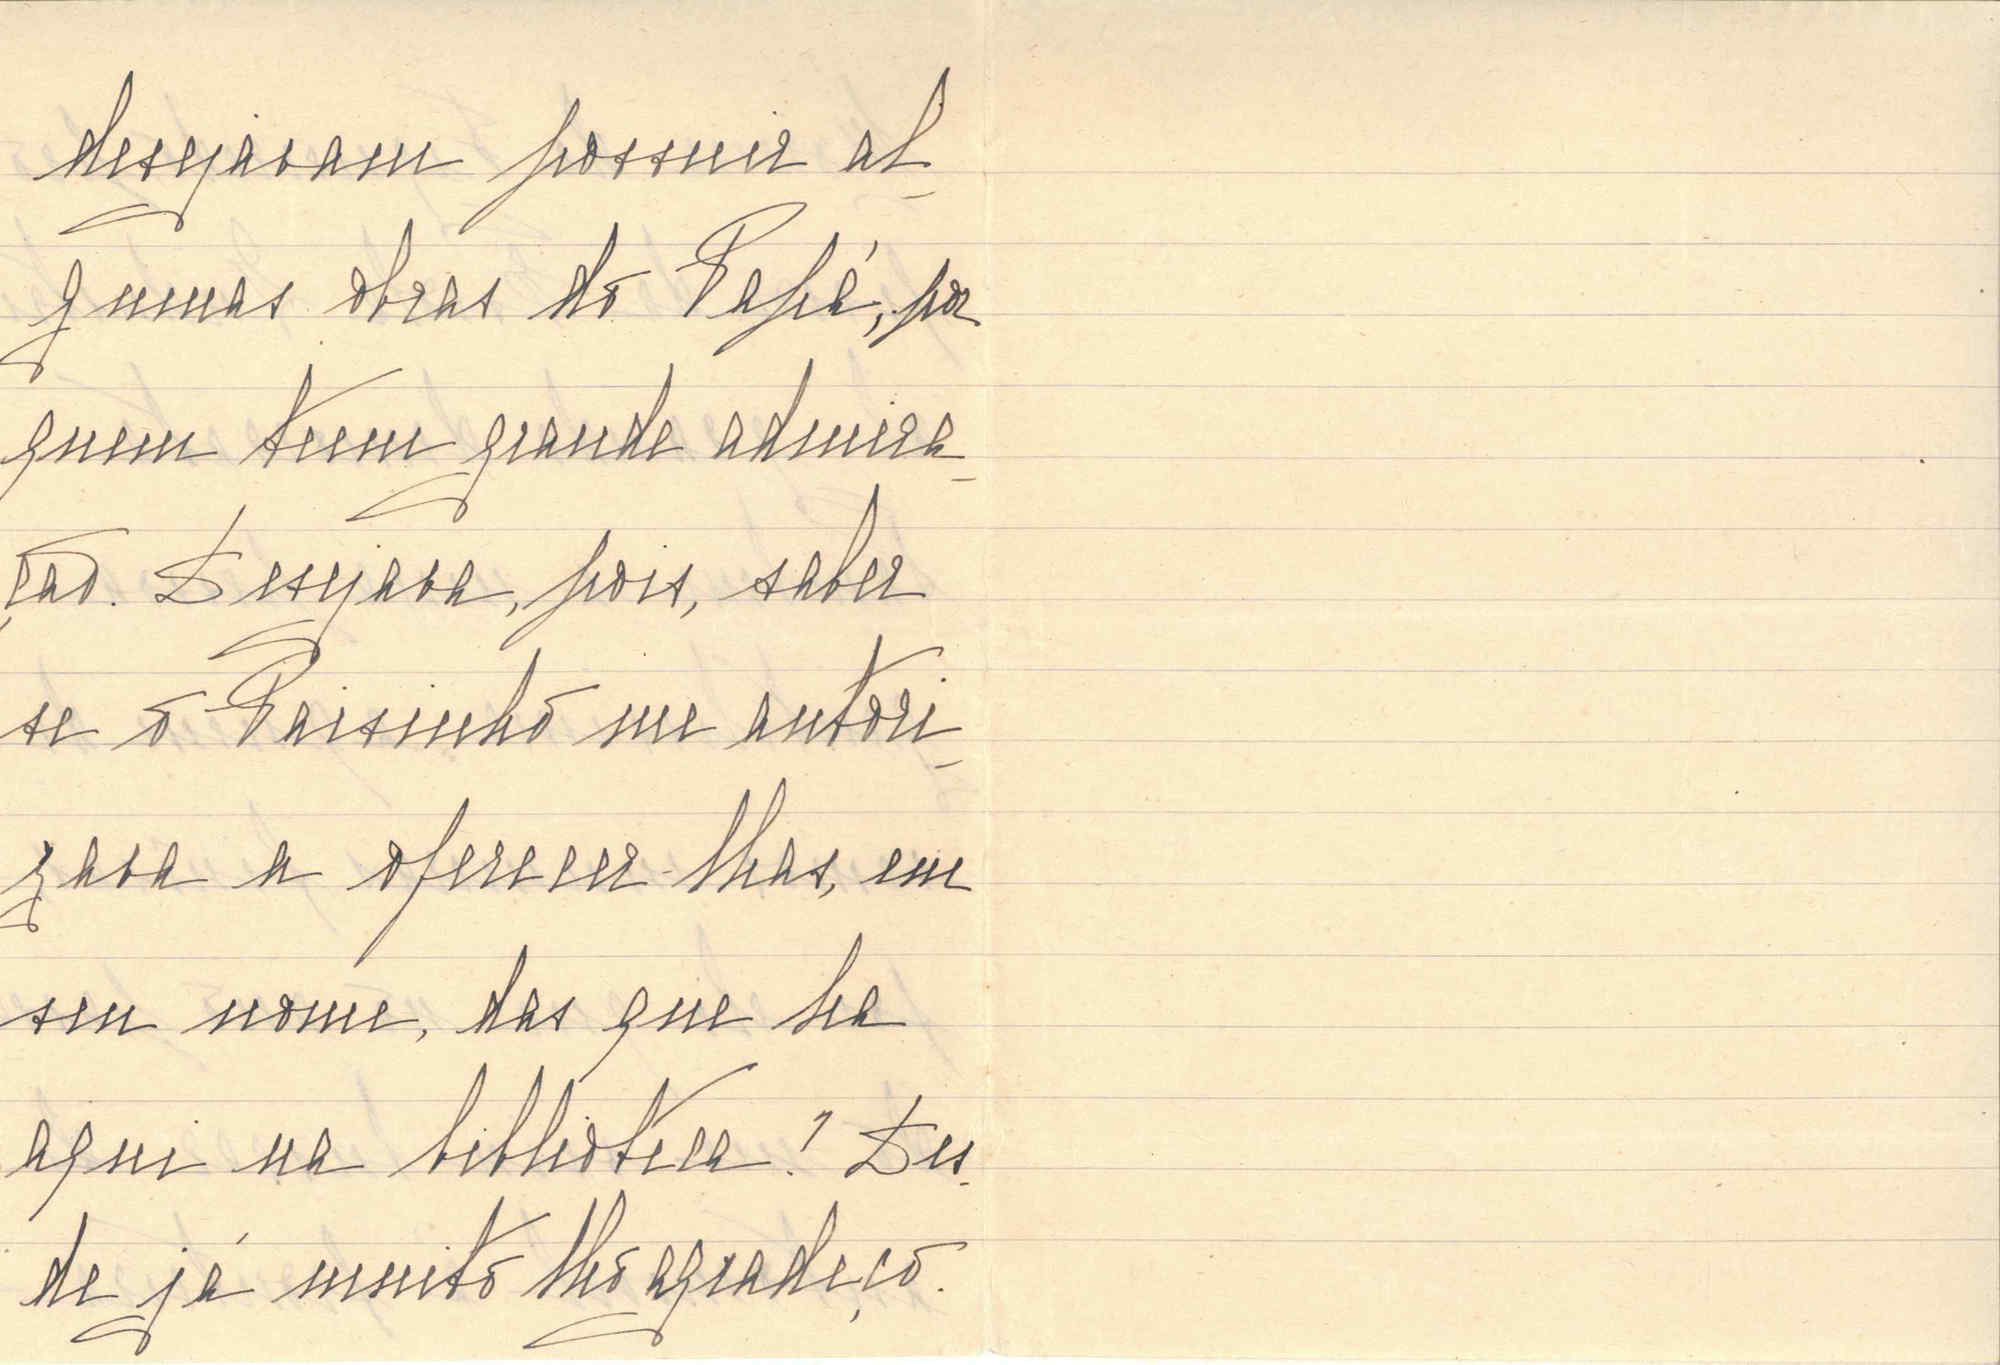 desejavam possuir al-
gumas obras do Papá, por
quem teem grande admira-
ção. Desejava, pois, saber
se o Paisinho me autori-
zava a oferecer-lhas, em
seu nome, das que ha
aqui na biblioteca? Des-
de já muito lho agradeço.